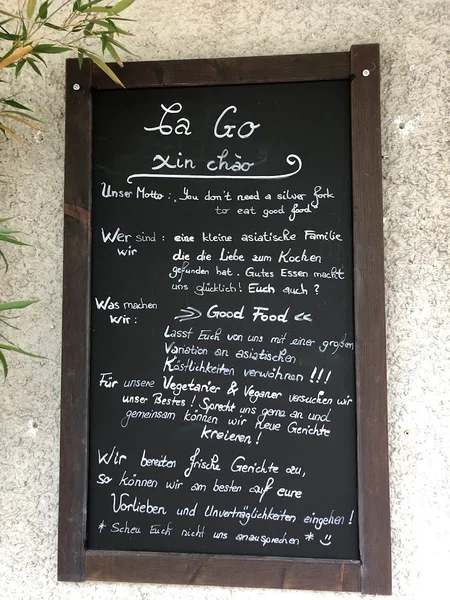 Ca Go
Xin chào
Unser Motto: You don't need a silver fork
to eat good food
Wer sind: eine kleine asiatische Familie
wir die die Liebe zum Kochen
gefunden hat. Gutes Essen macht
uns glücklich! Euch auch?
Was machen
wir: >> Good Food <<
Lasst Euch von uns mit einer großen
Variation an asiatischen
Köstlichkeiten verwöhnen!!!
Für unsere Vegetarier & Veganer versuchen wir
unser Bestes! Sprecht uns gerne an und
gemeinsam können wir neue Gerichte
kreieren!
Wir bereiten frische Gerichte zu,
so können wir am besten auf eure
Vorlieben und Unverträglichkeiten eingehen!
* Scheu Euch nicht uns anzusprechen *